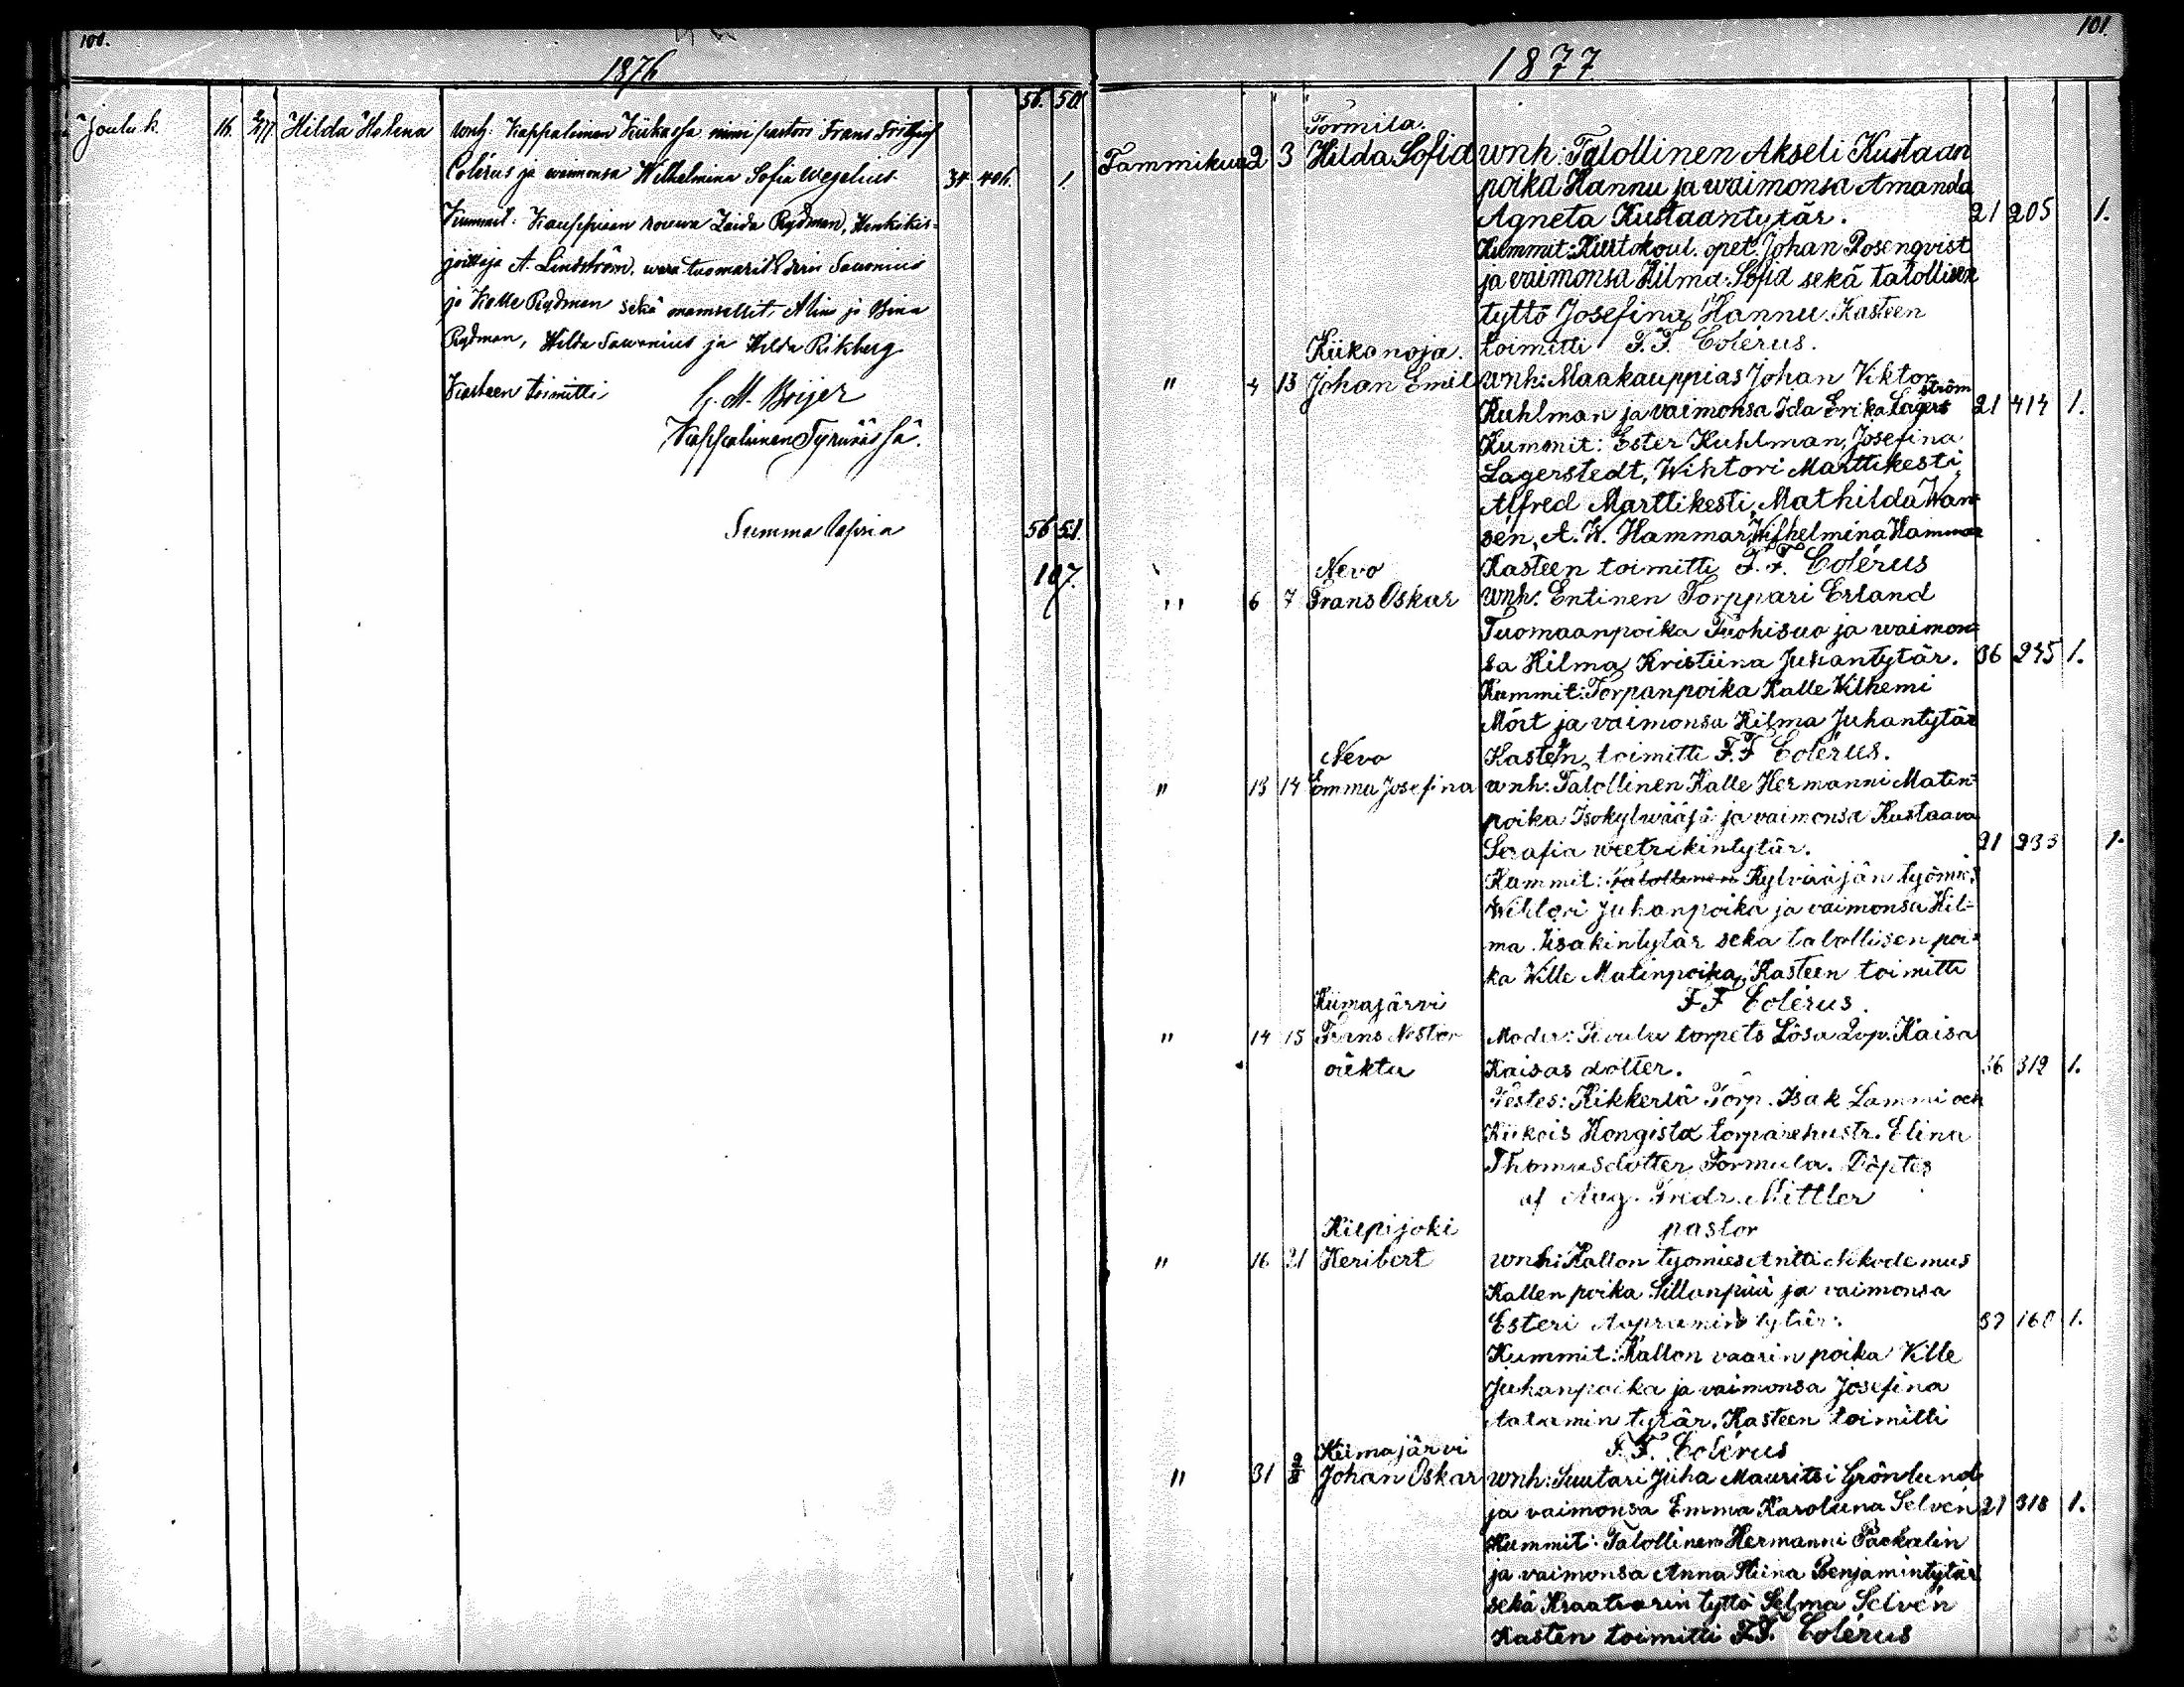 100.
1876
56. 50.
Jouluk. 16. 2/1 77 Hilda Helena wnh: Kappalainen Kiikassa nimi pastori Frans Fritjof
Colérus ja waimonsa Wilhelmina Sofia Wegelius 34 406. 1.
Kummit: Kauppiaan rouwa Zaida Rydman, Henkikir-
joittaja A. Lindström, wara tuomarit Edvin Sawonius
ja Kalle Rydman sekä mamsellit, Alina ja Bina
Rydman, Hilda Sawonius ja Hilda Rikberg
Kasteen toimitti G. M. Boijer
Kappalainen Tyrväässä.
Summa 56 51.
107.
101.
1877
Tormila.
Tammikuu 2 3 Hilda Sofia wnh: Talollinen Akseli Kustaan
poika Hannu ja waimonsa Amanda
Agneta Kustaantytär. 21 205 1.
Kummit: Kiertokoul. opet. Johan Rosenqvist
ja vaimonsa Hilma Sofia sekä talollisen
tyttö Josefina Hannu. Kasteen
Kiikanoja. toimitti F. F. Colérus.
" 4 13 Johan Emil wnh: Maakauppias Johan Viktor
Kuhlman ja vaimonsa Ida Erika Lagerström 21 414 1.
Kummit: Ester Kuhlman, Josefina
Lagerstedt, Wihtori Marttikesti,
Alfred Marttikesti, Mathilda Wan-
sén, A. W. Hammar, Wilhelmina Hammar
Nevo Kasteen toimitti F. F. Colérus
" 6 7 Frans Oskar wnh. Entinen Torppari Erland
Tuomaanpoika Tuohisuo ja waimon-
sa Hilma Kristiina Juhantytär. 36 245 1.
Kummit: Torpanpoika Kalle Vilhemi
Mört ja vaimonsa Hilma Juhantytär
Nevo Kasteen toimitti F. F. Colérus.
" 13 14 Emma Josefina wnh: Talollinen Kalle Hermanni Matin-
poika Isokylwääjä ja vaimonsa Kustaava
Serafia weetrikintytär. 21 233 1.
Kummit: Talollinen Kylvääjän työmies
Wihtori Juhanpoika ja vaimonsa Hil-
ma Iisakintytär sekä talollisen poi-
ka Wille Matinpoika. Kasteen toimitti
Kiimajärvi F F Colérus.
" 14 15 Frans Nestor Moder: torpets Lösa Kaisa
oäkta Kaisas dotter. 36 312 1.
Testes: Kikkerlä Torp. Isak Lammi och
Kiikois Hongista torparehustr. Elina
Thomasdotter Formula. Döptes
af Aug. Fredr. Mittler
Kiipijoki pastor
" 16 21 Heribert wnh: Kallon työmies Antti Nikodemus
Kallen poika Sillanpää ja vaimonsa
Esteri Aapramin tytär. 37 160 1.
Kummit: Kallon vaarin poika Ville
Juhanpoika ja vaimonsa Josefina
Aatamin tytär. Kasteen toimitti
Kiimajärvi F. F. Colérus
" 31 Johan Oskar wnh: Suutari Juha Mauritsi Grönlund
ja vaimonsa Emma Karoliina Selvén 21 318 1.
Kummit: Talollinen Hermanni Packalin
ja vaimonsa Anna Stiina Benjamintytär
sekä Kraatarin tyttö Selma Selvén
Kasten toimitti F. F. Colérus
5 2